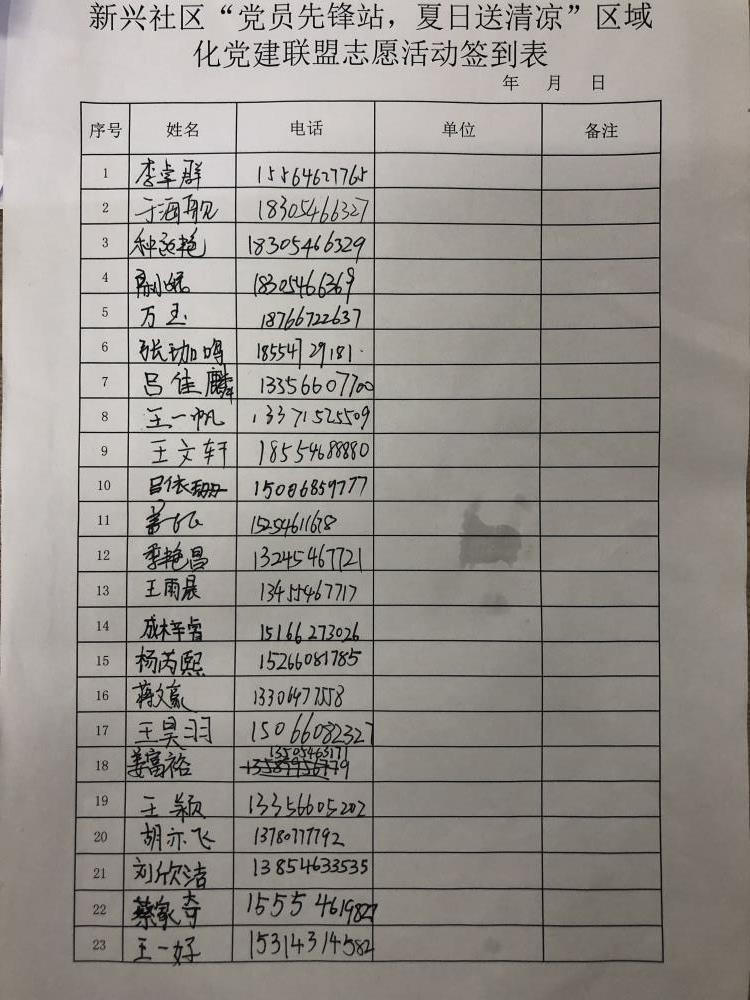 新兴社区“党员先锋站，夏日送清凉”区域
化党建联盟志愿活动签到表
年 月 日
序号 姓名 电话 单位 备注
1 李卓群 15564627765
2 于海舰 18305466327
3 18305466329
4 18305466369
5 万玉 18766722637
6 张珈鸣 18554729181
7 吕佳麟 13356607700
8 王一帆 13371525509
9 王文轩 18554688880
10 吕依珊 15006859777
11 15254611678
12 季艳昌 13245467721
13 王雨晨 13455467717
14 成梓睿 15166273026
15 杨芮熙 15266081785
16 蒋文豪 13306477558
17 王昊羽 15066082327
18 姜富裕
19 王颖 13356605202
20 胡亦飞 13780777792
21 刘欣洁 13854633535
22 蔡家奇 15554619827
23 王一好 15314314582